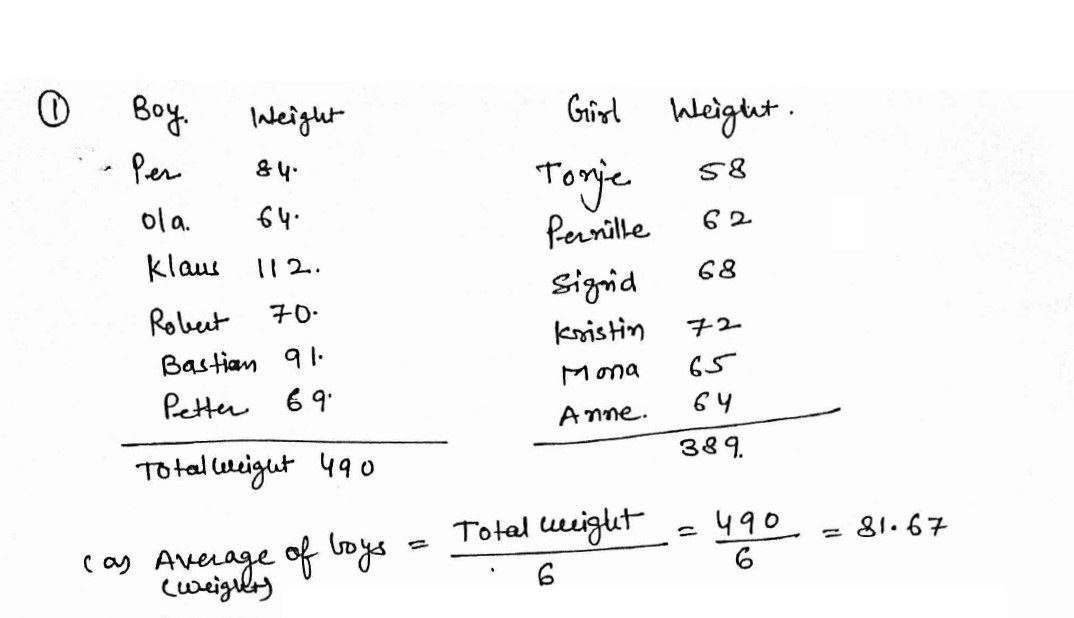 ① Boy. Weight Girl Weight.
Per 84. Tonje 58
Ola. 64. Pernille 62
Klaus 112. Sigrid 68
Robert 70. Kristin 72
Bastian 91. Mona 65
Petter 69. Anne. 64
Total weight 490 389.
(a) Average of boys = Total weight / 6 = 490 / 6 = 81.67
(weight)